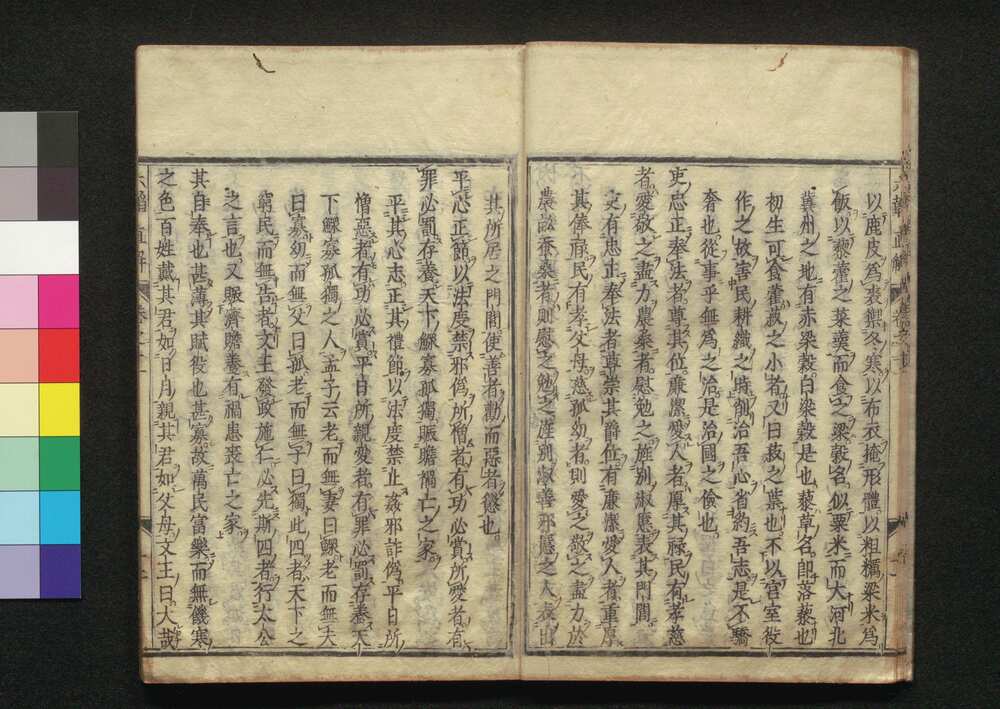 以鹿皮爲裘禦冬寒以布衣掩形體以粗糲粱米爲
飯以藜藿之菜羹而食之粱穀名似粟米而大河北
冀州之地有赤粱穀白粱穀是也藜草名卽落藜也
初生可食藿菽之小者又曰菽之葉也不以宮室役
作之故害民耕織之時削治吾心省約吾志是不驕
奢也從事乎無爲之治是治國之儉也
吏忠正奉法者尊其位廉潔愛人者厚其祿民有孝慈
者愛敬之盡力農桑者慰勉之旌別淑慝表其門閭
吏有忠正奉法者尊崇其爵位有廉潔愛人者重厚
其俸祿民有孝父母慈孤幼者則愛之敬之盡力於
農畝蠶桑者則慰之勉之旌別淑善邪慝之人表出
其所居之門閭使善者勸而惡者懲也
平心正節以法度禁邪僞所憎者有功必賞所愛者有
罪必罰存養天下鰥寡孤獨賑贍禍亡之家
平其心志正其禮節以法度禁止姦邪詐僞平日所
憎惡者有功必賞平日所親愛者有罪必罰存養天
下鰥寡孤獨之人孟子云老而無妻曰鰥老而無夫
曰寡幼而無父曰孤老而無子曰獨此四者天下之
窮民而無告者文王發政施仁必先斯四者行太公
之言也又賑濟贍養有禍患喪亡之家
其自奉也甚薄其賦役也甚寡故萬民富樂而無饑寒
之色百姓戴其君如日月親其君如父母文王曰大哉